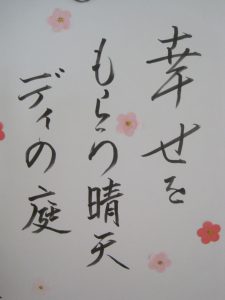 幸せを
もらう晴天
ディの庭